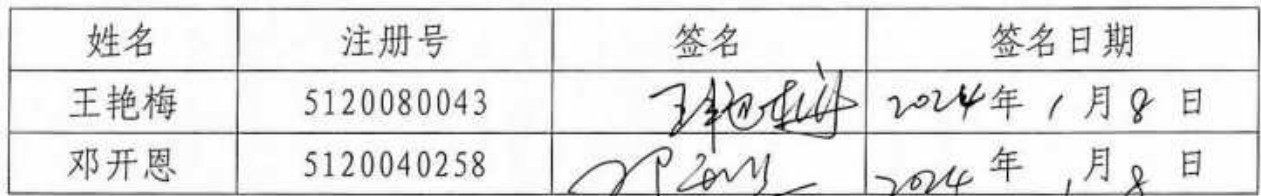 姓名 注册号 签名 签名日期
王艳梅 5120080043 王艳梅 2024年1月8日
邓开恩 5120040258 邓开恩 2024年1月8日